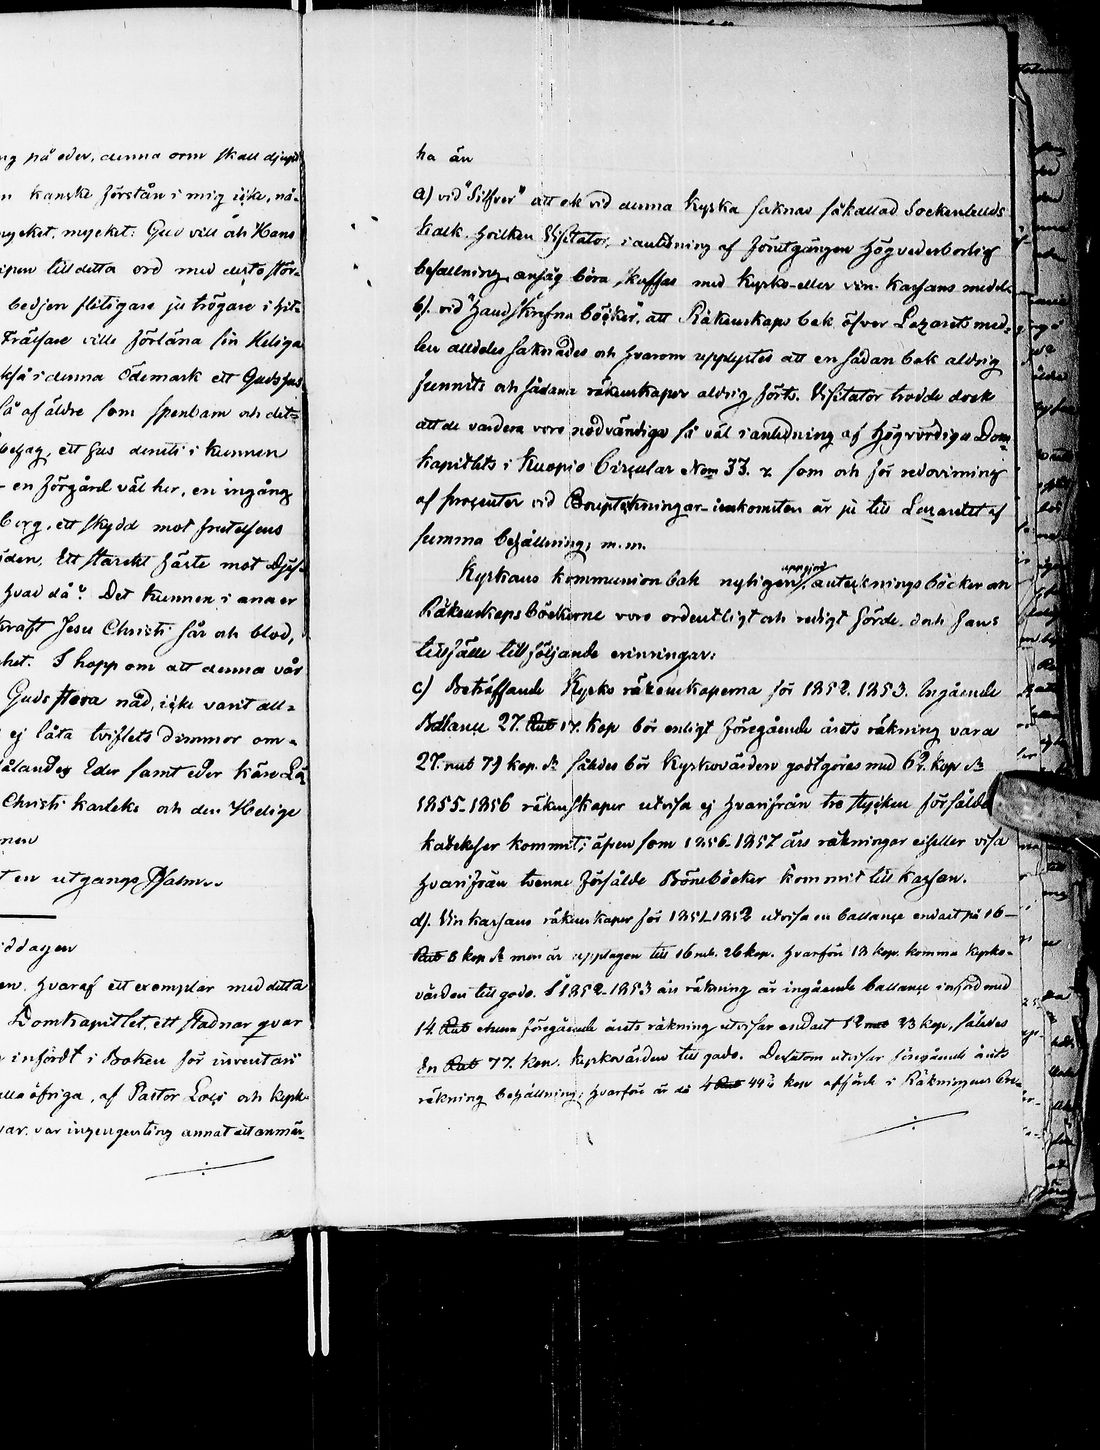 ng på eder, denna orm skall djupt
n kanske förstån i mig icke, nå-
mycket, mycket: Gud vill och Hans
ipen till detta ord med desto stör-
bedjen flitigare ju trögare i hit-
Frälsare ville förläna sin Heliga
kså i denna Ödemark ett Guds hus
så af äldre som spenbarn och det-
behag, ett hus deruti i kunnen
en Förgård väl her, en ingång
berg, ett skydd mot frestelsens
iden, Ett starkt fäste mot Djef-
hvad då? Det kunnen i ana er
kraft Jesu Christi sår och blod,
het. I hopp om att denna vår
Guds stora nåd, icke varit all-
ej låta tviflets dimmor om-
Eder samt eder kära
Christi kärleks och den Helige
men
ten utgångs Psalm..
iddagen
en, hvaraf ett exemplar med detta
Domkapitlet, ett stadnar qvar
infördt i Boken för inventarii
alla öfriga, af Pastor och Kyrk-
var, var ingengenting annat att anmär-
ha än
a) vid "Silfver" att ock vid denna Kyrka saknas såkallad Sockenbuds
kalk, hvilken Visitator, i anledning af föregången högvederbörlig
befallning, ansåg böra skaffas med Kyrko- eller vin Kassans medel.
b). vid "Handskrefna böcker", att Räkenskaps bok öfver Lazarets med-
len alldeles saknades och hvarom upplystes att en sådan bok aldrig
funnits och sådana räkenskaper aldrig förts. Visitator trodde dock
att de vardera voro nödvändiga så väl i anledning af Högvördiga Dom
Kapitlets i Kuopio Circulär Nom 33. som och för redovisning
af procenter vid Bouptekningar - inkomsten är ju till Lazarettet af
summa behållning, m.m.
Kyrkans kommunionbok nyligen uppgjord, antecknings böcker och
Räkenskaps böckerne voro ordentligt och redigt förde, doch fanns
tillfälle till följande erinringar:
c) Beträffande Kyrko räkenskaperna för 1852-1853. Ingående
Ballance 27. Rub 17. kop bör enligt föregående årets räkning vara
27. rub 79 kop. Sr således bör Kyrkovärden godtgöras med 62. kop Sr
1855-1856 räkenskaper utvisa ej hvarifrån tre stycken försålde
katekeser kommit; äfven som 1856-1857 års räkningar ejheller visa
hvarifrån tvenne försålde Bönebökker kommit till kassan.
d). Vin kassans räkenskaper för 1851-1852 utvisa en ballance endast på 16-
Rub 8 kop Sr men är upptagen till 16 rub. 26 kop. hvarföre 18 kop. komma Kyrko-
värden till godo. I 1852-1853 års räkning är ingående ballance införd med
14 Rub ehuru föregående årets räkning utvisar endast 12 rub 23 kop, således
En Rub 77. kop. Kyrkovärden till godo. Dessutom utvisar föregående årets
räkning behållning; hvarföre är då 4 Rub 44½ kop afförde i Räkningens